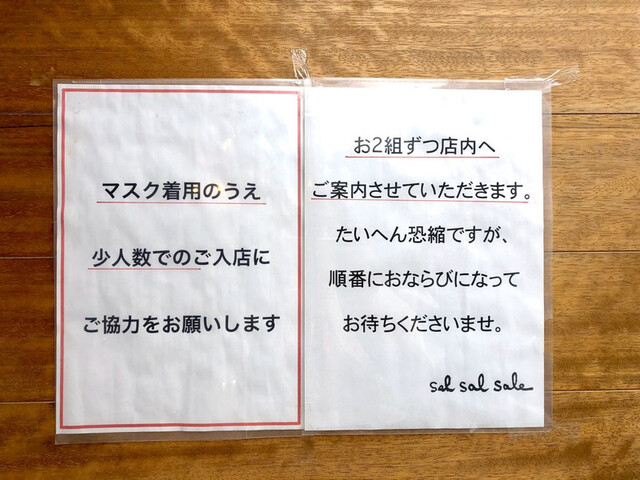 マスク着用のうえ
少人数でのご入店に
ご協力をお願いします
お2組ずつ店内へ
ご案内させていただきます。
たいへん恐縮ですが、
順番におならびになって
お待ちくださいませ。
sal sal sale